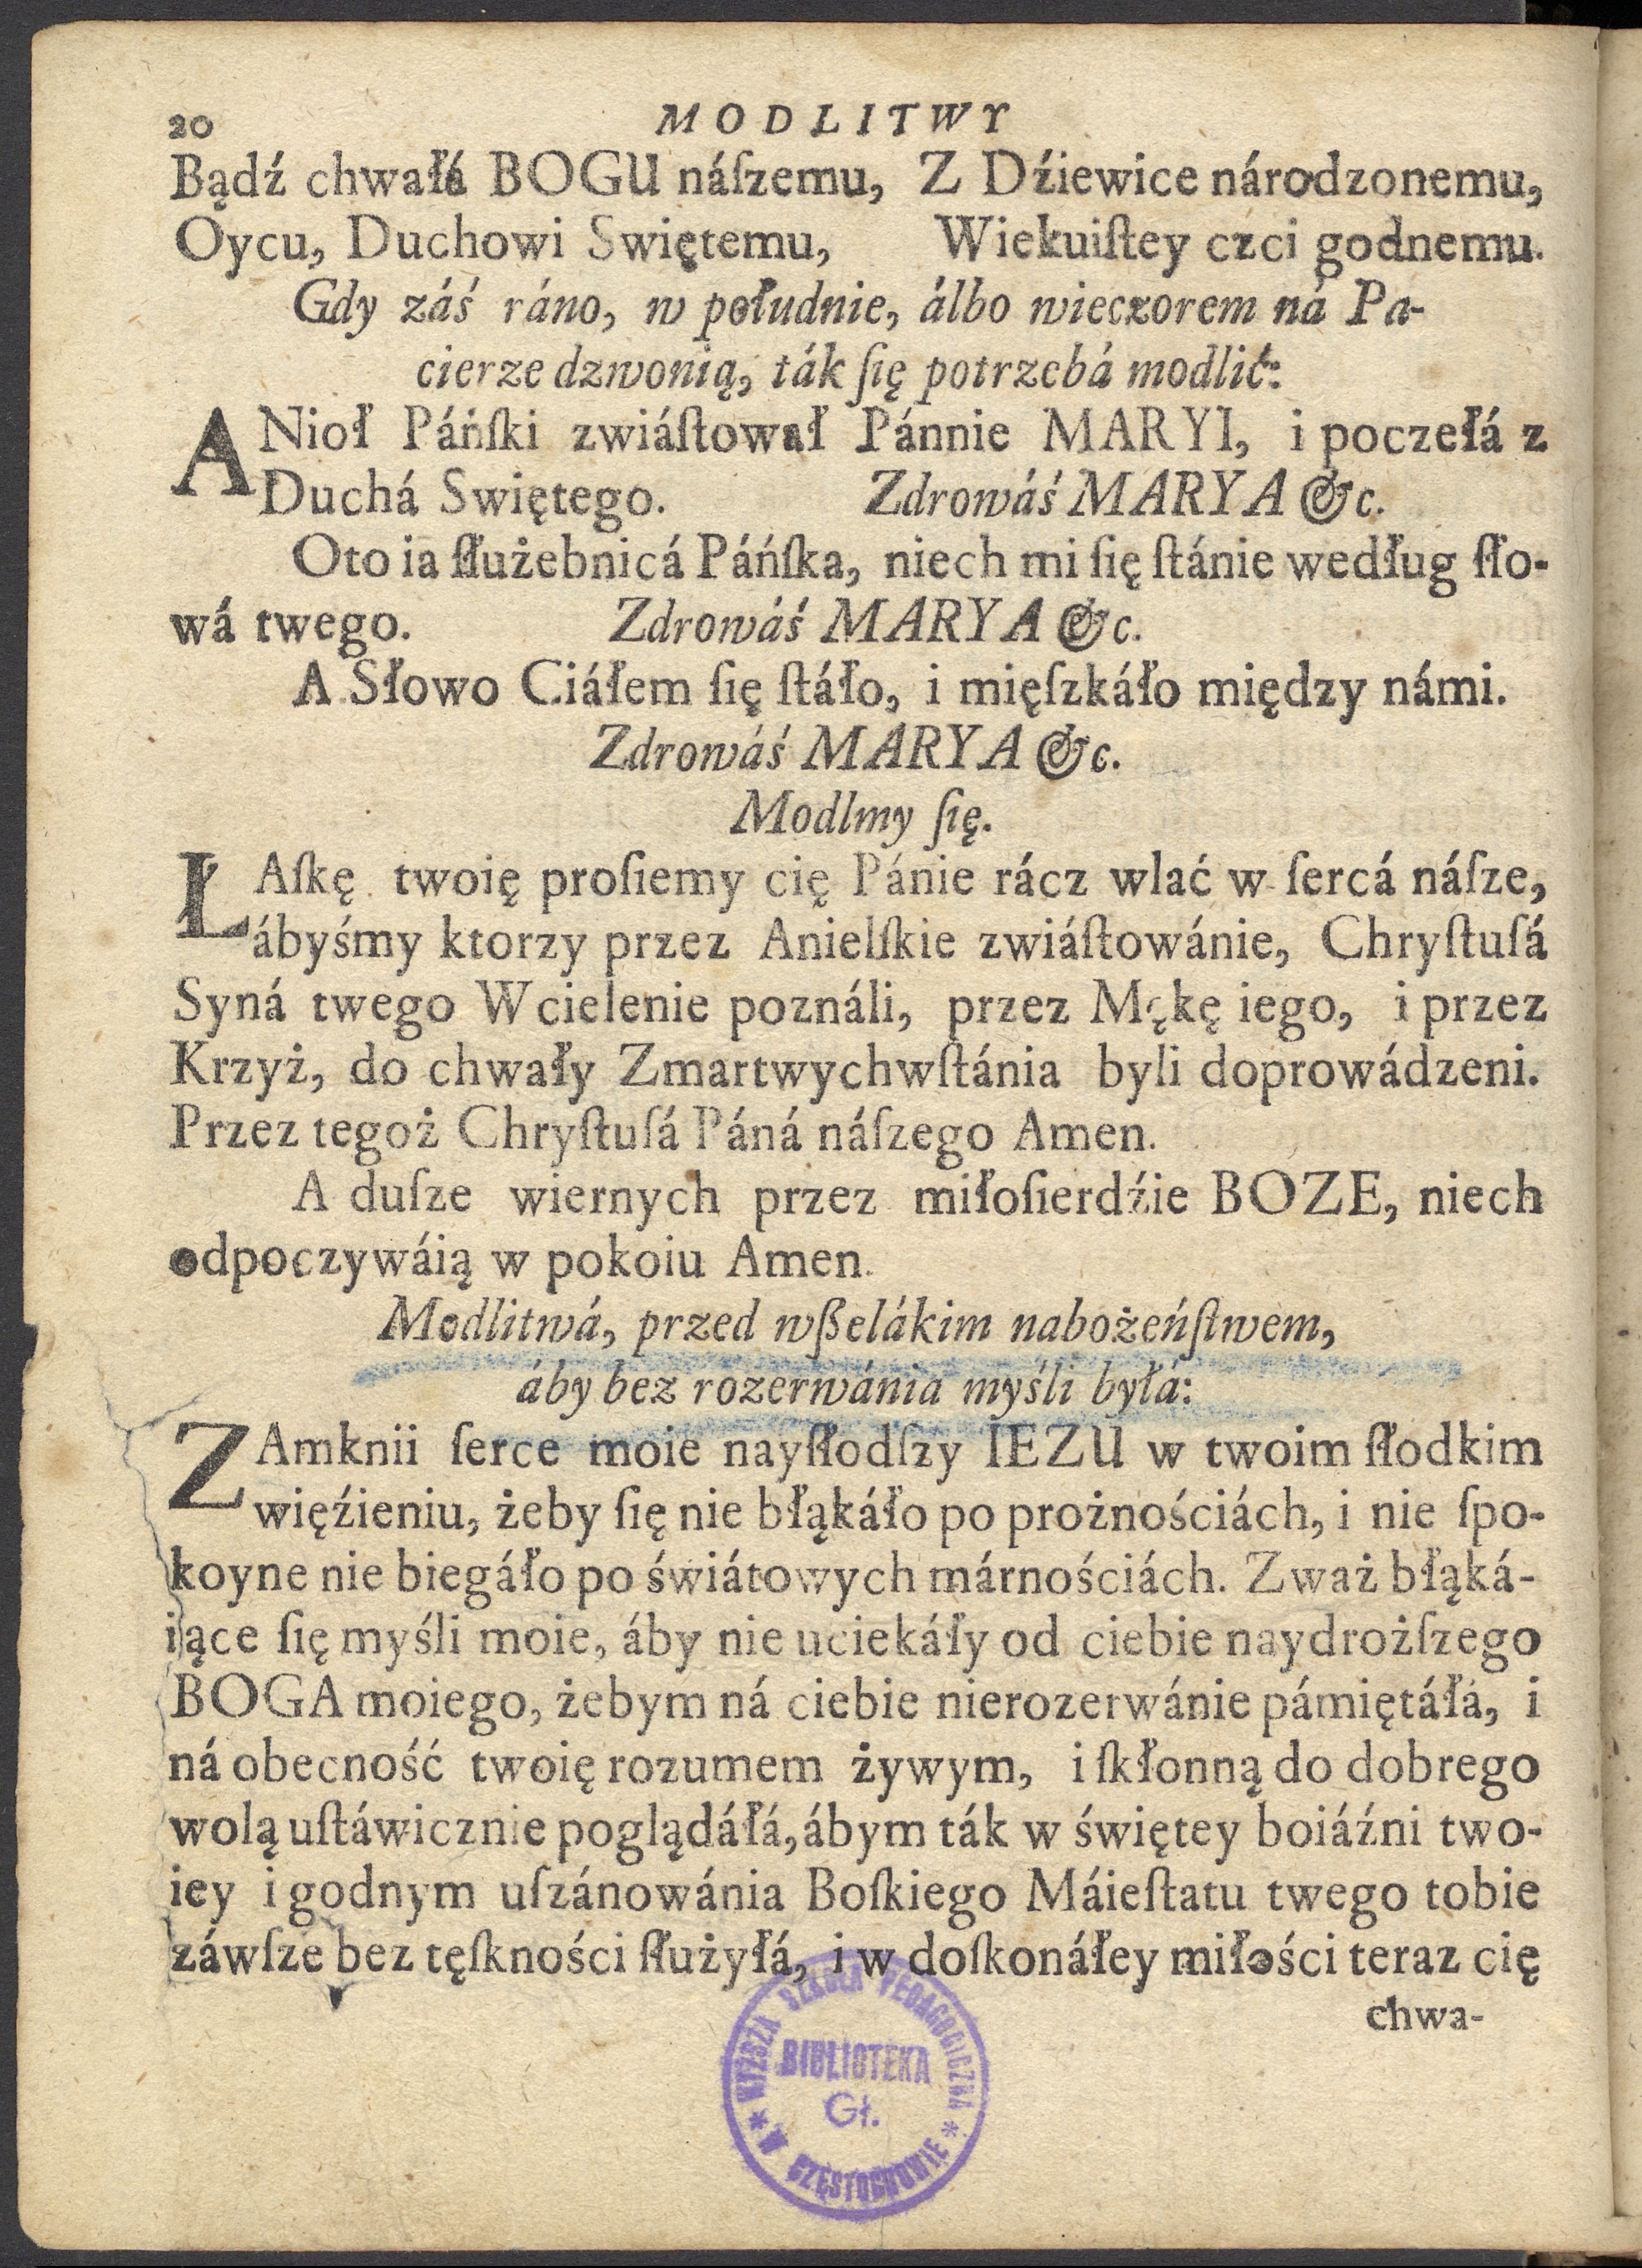 20 MODLITWY
Bądź chwałá BOGU náſzemu, Z Dźiewice národzonemu,
Oycu, Duchowi Swiętemu, Wiekuiſtey czci godnemu.
Gdy záś ráno, w południe, álbo wieczorem ná Pa-
cierze dzwonią, ták ſię potrzebá modlić:
ANioł Páńſki zwiáſtował Pánnie MARYI, i poczełá z
Duchá Swiętego. Zdrowáś MARYA &c.
Oto ia ſłużebnicá Páńſka, niech mi ſię ſtánie według ſło-
wá twego. Zdrowáś MARYA &c.
A Słowo Ciáłem ſię ſtáło, i mięſzkáło między námi.
Zdrowáś MARYA &c.
Modlmy ſię.
ŁAſkę twoię proſiemy cię Pánie rácz wlać w ſercá náſze,
ábyśmy ktorzy przez Anielſkie zwiáſtowánie, Chryſtuſá
Syná twego Wcielenie poználi, przez Mękę iego, i przez
Krzyż, do chwały Zmartwychwſtánia byli doprowádzeni.
Przez tegoż Chryſtuſá Páná náſzego Amen.
A duſze wiernych przez miłoſierdźie BOZE, niech
odpoczywáią w pokoiu Amen.
Modlitwá, przed wßelákim nabożeńſtwem,
áby bez rozerwánia myśli byłá:
ZAmknii ſerce moie nayſłodſzy IEZU w twoim ſłodkim
więźieniu, żeby ſię nie błąkáło po prożnościách, i nie ſpo-
koyne nie biegáło po świátowych márnościách. Zważ błąká-
iące ſię myśli moie, áby nie uciekáły od ciebie naydrożſzego
BOGA moiego, żebym ná ciebie nierozerwánie pámiętáłá, i
ná obecność twoię rozumem żywym, i ſkłonną do dobrego
wolą uſtáwicznie poglądáłá, ábym ták w świętey boiáźni two-
iey i godnym uſzánowánia Boſkiego Máieſtatu twego tobie
záwſze bez tęſkności ſłużyłá, i w doſkonáłey miłości teraz cię
chwa-
WYŻSZA SZKOŁA PEDAGOGICZNA
BIBLIOTEKA
Gł.
* W CZĘSTOCHOWIE *